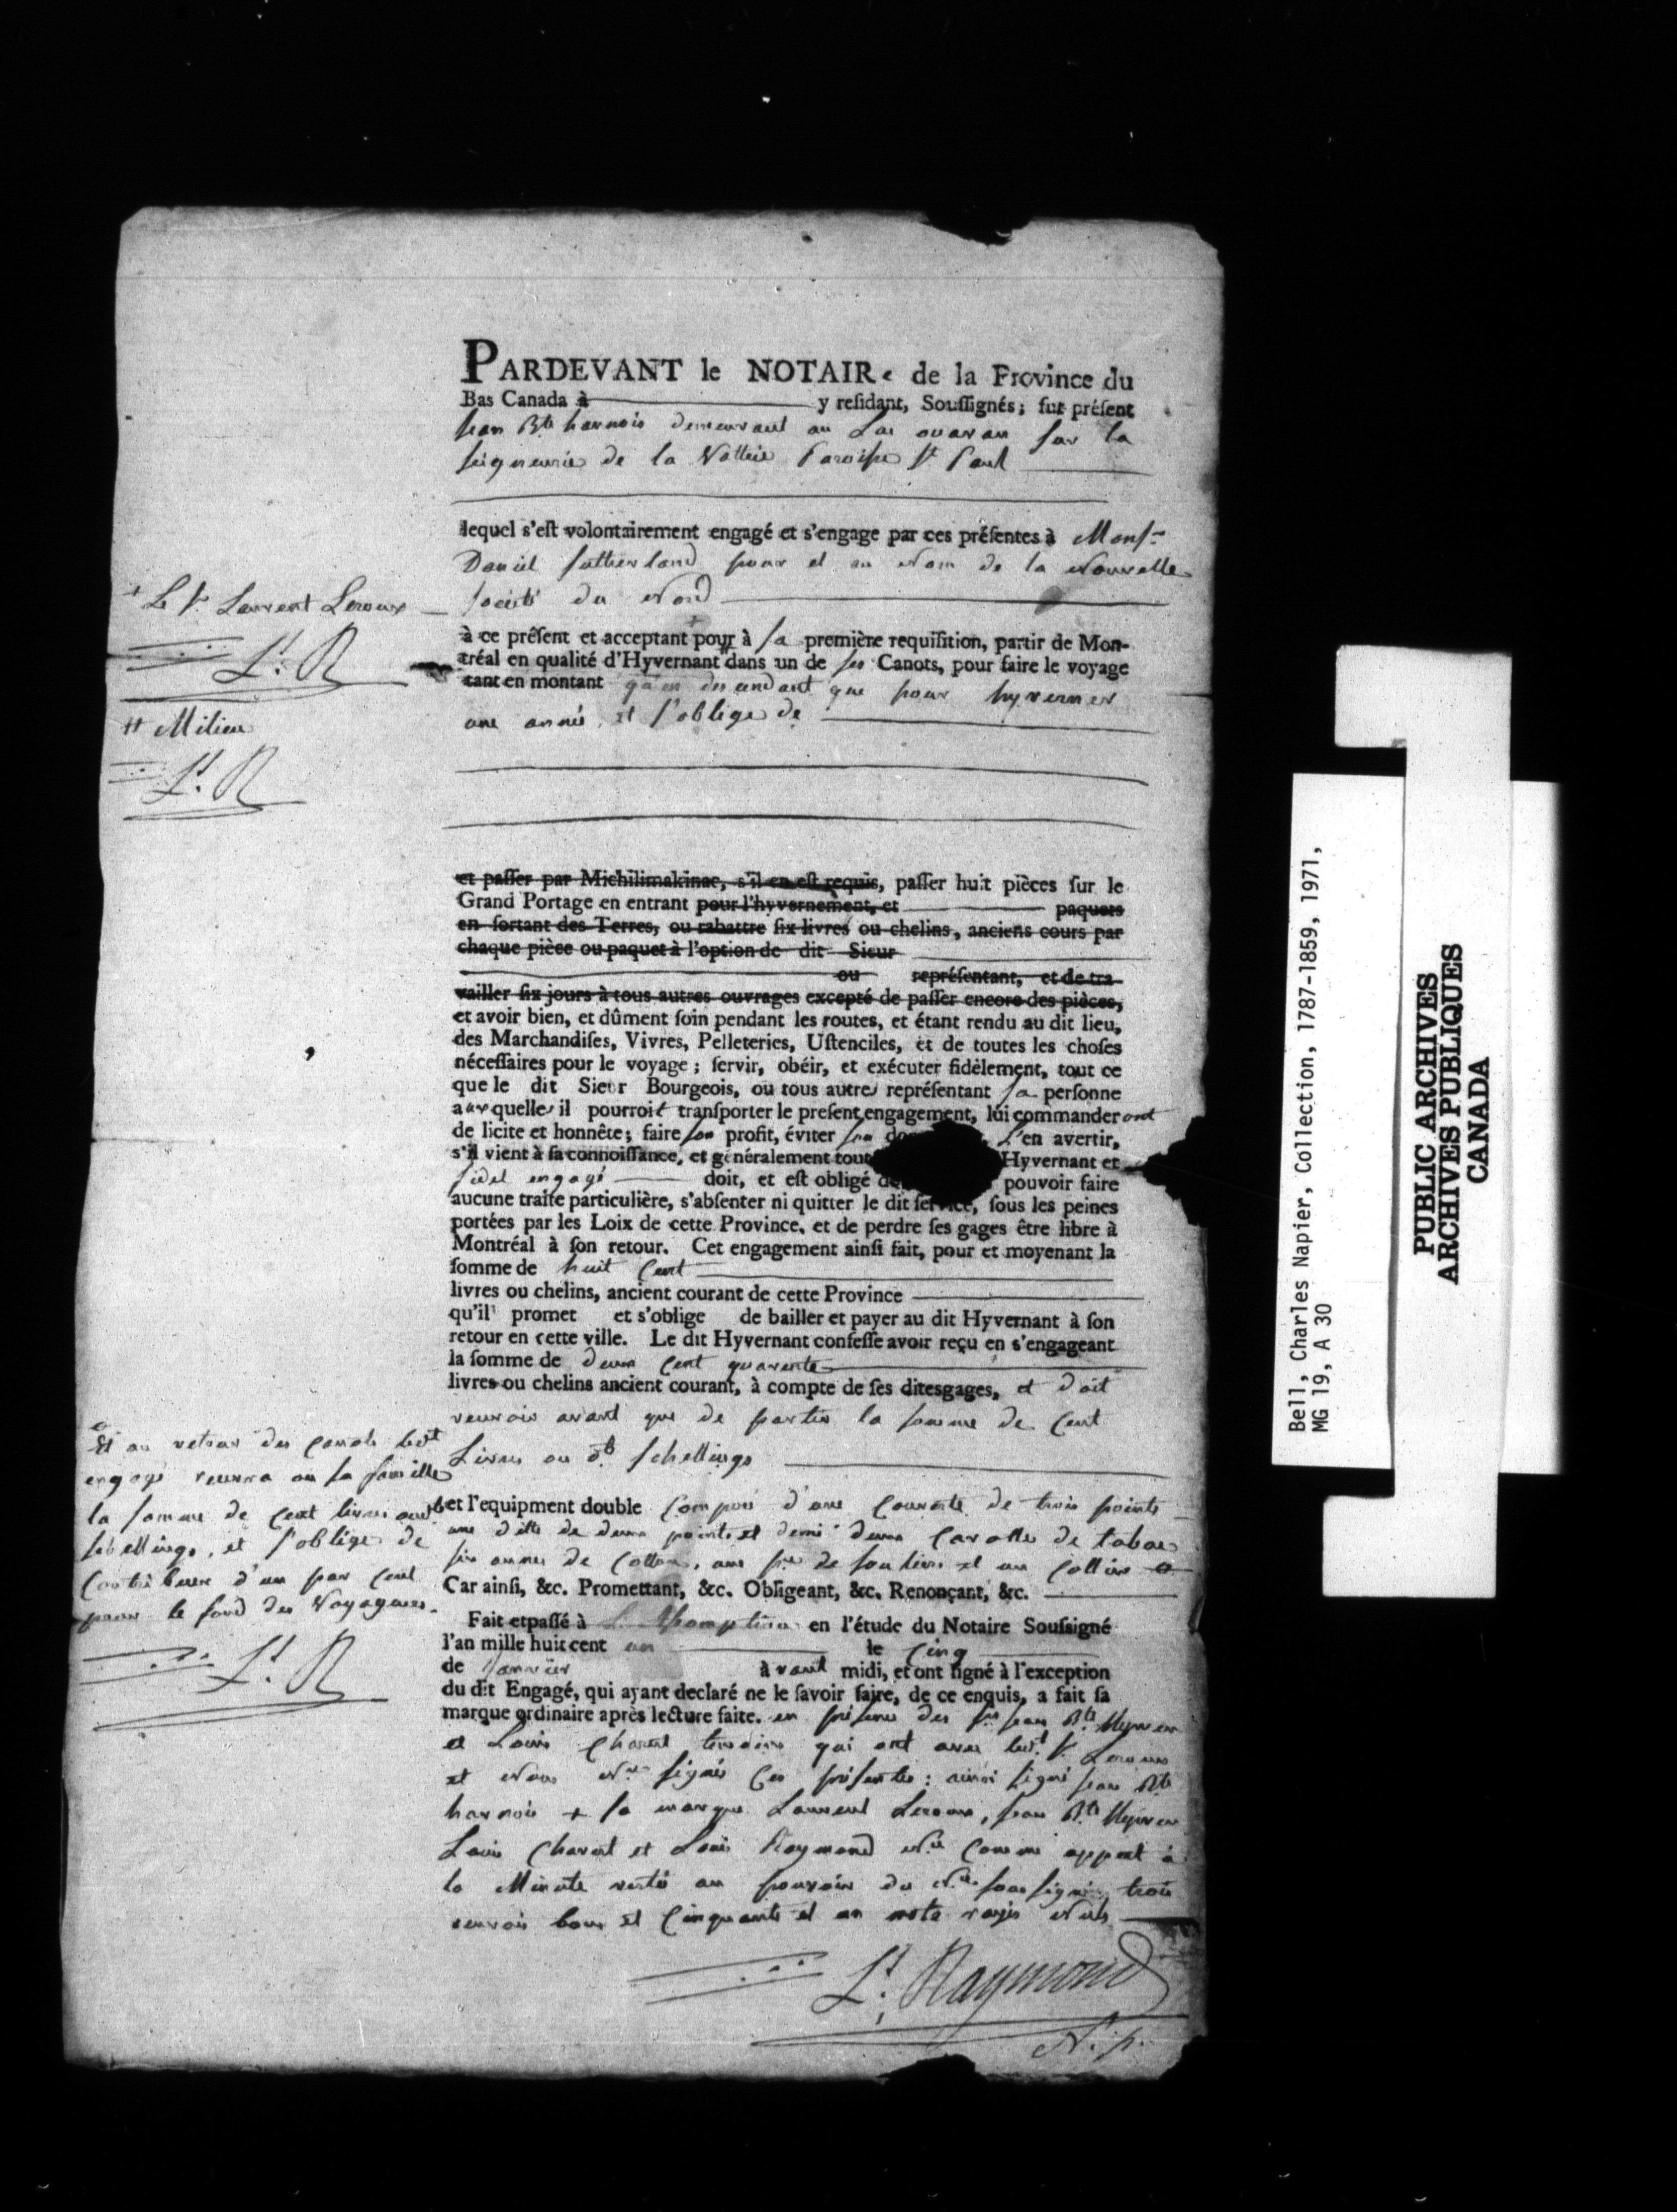 PARDEVANT le NOTAIRe de la Province du
Bas Canada à y reſidant, Souſſignés; fut préſent
Jean Bte harnois demeurant au Lac ouarau sur la
seigneurie de la Valtrie Paroisse St Paul
lequel s'eſt volontairement engagé et s'engage par ces préſentes à Monsr
Daniel Sutherland pour et au Nom de la Nouvelle
+ Le Sr Laurent Leroux
Societé du Nord
à ce préſent et acceptant pour à sa première requiſition, partir de Mon-
tréal en qualité d'Hyvernant # dans un de ses Canots, pour faire le voyage
tant en montant qu'en descendant que pour hyverner
une année et s'oblige de
Lt. R
# Milieu
Lt. R
et paſſer par Michilimakinac, s'il en eſt requis, paſſer huit pièces ſur le
Grand Portage en entrant pour l'hyvernement, et paquets
en ſortant des Terres, ou rabattre ſix livres ou chelins, anciens cours par
chaque pièce ou paquet à l'option de dit Sieur
ou repréſentant, et de tra-
vailler ſix jours à tous autres ouvrages excepté de paſſer encore des pièces,
et avoir bien, et dûment ſoin pendant les routes, et étant rendu au dit lieu,
des Marchandiſes, Vivres, Pelleteries, Uſtenciles, et de toutes les choſes
néceſſaires pour le voyage; ſervir, obéir, et exécuter fidèlement, tout ce
que le dit Sieur Bourgeois, ou tous autres repréſentant sa perſonne
auxquelles il pourroit tranſporter le preſent engagement, lui commanderont
de licite et honnête; faire son profit, éviter son do L'en avertir,
s'il vient à ſa connoiſſance, et généralement tout Hyvernant et
fidel engagé doit, et eſt obligé de pouvoir faire
aucune traite particulière, s'abſenter ni quitter le dit ſervice, ſous les peines
portées par les Loix de cette Province, et de perdre ſes gages être libre à
Montréal à ſon retour. Cet engagement ainſi fait, pour et moyenant la
ſomme de huit Cent
livres ou chelins, ancient courant de cette Province
qu'il promet et s'oblige de bailler et payer au dit Hyvernant à ſon
retour en cette ville. Le dit Hyvernant confeſſe avoir reçu en s'engageant
la ſomme de deux Cent quarente
livres ou chelins ancient courant, à compte de ſes ditesgages, et doit
recevoir avant que de partir la somme de Cent
Livres ou dts schellings
Et au retour des Canots ledt
engagé recevra ou sa famille
la somme de Cent livres
schellings, et s'oblige de
Contribuer d'un par Cent
pour le fond des Voyageurs.
Lt. R
et l'equipment double Composé d'une Couverte de trois points
une ditte de deux points et demi deux Carottes de tabac
six aunes de Cotton, une pre de souliers et un Collier
Car ainſi, &c. Promettant, &c. Obligeant, &c. Renonçant, &c.
Fait etpaſſé à L'Assomption en l'étude du Notaire Souſsigné
l'an mille huit cent un le Cinq
de Janvier avant midi, et ont ſigné à l'exception
du dit Engagé, qui ayant declaré ne le ſavoir faire, de ce enquis, a fait ſa
marque ordinaire après lecture faite. en présence des Srs Jean Bte
et Louis temoins qui ont avec ledt Sr Leroux
et Nous Nre signés Ces présentes: ainsi signé Jean Bte
harnois + sa marque Laurent Leroux, Jean Bte
Louis et Louis Raymond Nre Comme appert à
la Minute restée au pouvoir du Nre soussigné, trois
renvois bons et Cinquante et un mots rayés Nuls
Lt. Raymond
N. p.
Bell, Charles Napier, Collection, 1787-1859, 1971,
MG 19, A 30
PUBLIC ARCHIVES
ARCHIVES PUBLIQUES
CANADA